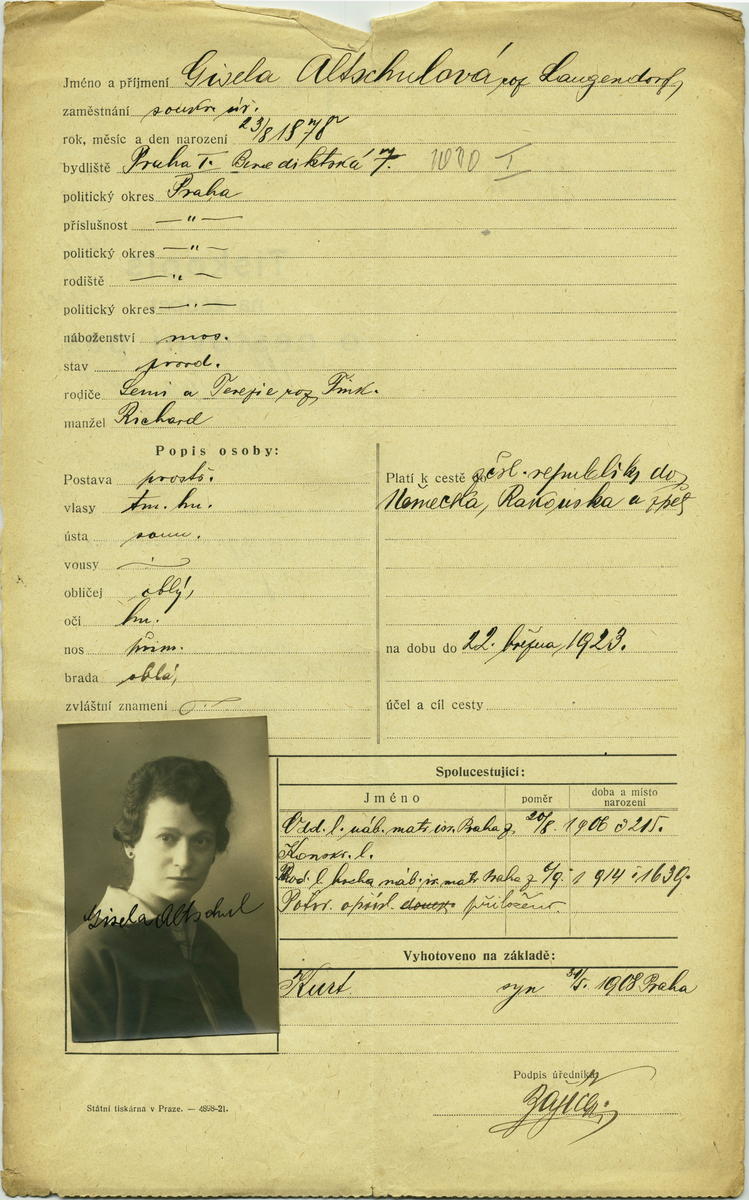 Jméno a příjmení Gisela Altschulová roz Langendorf
zaměstnání soukr. úř.
rok, měsíc a den narození 23/8 1878
bydliště Praha I. Benediktská 7.
politický okres Praha
příslušnost — " —
politický okres — " —
rodiště — " —
politický okres — " —
náboženství mos.
stav provd.
rodiče a Terezie roz. Fink.
manžel Richard
Popis osoby:
Postava prostř.
vlasy tm. hn.
ústa soum.
vousy —
obličej oblý,
oči hn.
nos přim.
brada oblá,
zvláštní znamení
Platí k cestě do čsl. republiky do
Německa, Rakouska a zpět
na dobu do 22. března, 1923.
účel a cíl cesty
Gisela Altschul
Spolucestující:
Jméno poměr doba a místo narození
Odd. l. náb. matr. isr. Praha z 20/8. 1906 č 215.
Konskr. l.
Rod. l. hocha náb. is. matr. Praha z /9. 1914 č 1639.
Potvr. přilož
Vyhotoveno na základě:
Kurt syn 31/5. 1908 Praha
Podpis úředníka
Státní tiskárna v Praze. — 4898-21.